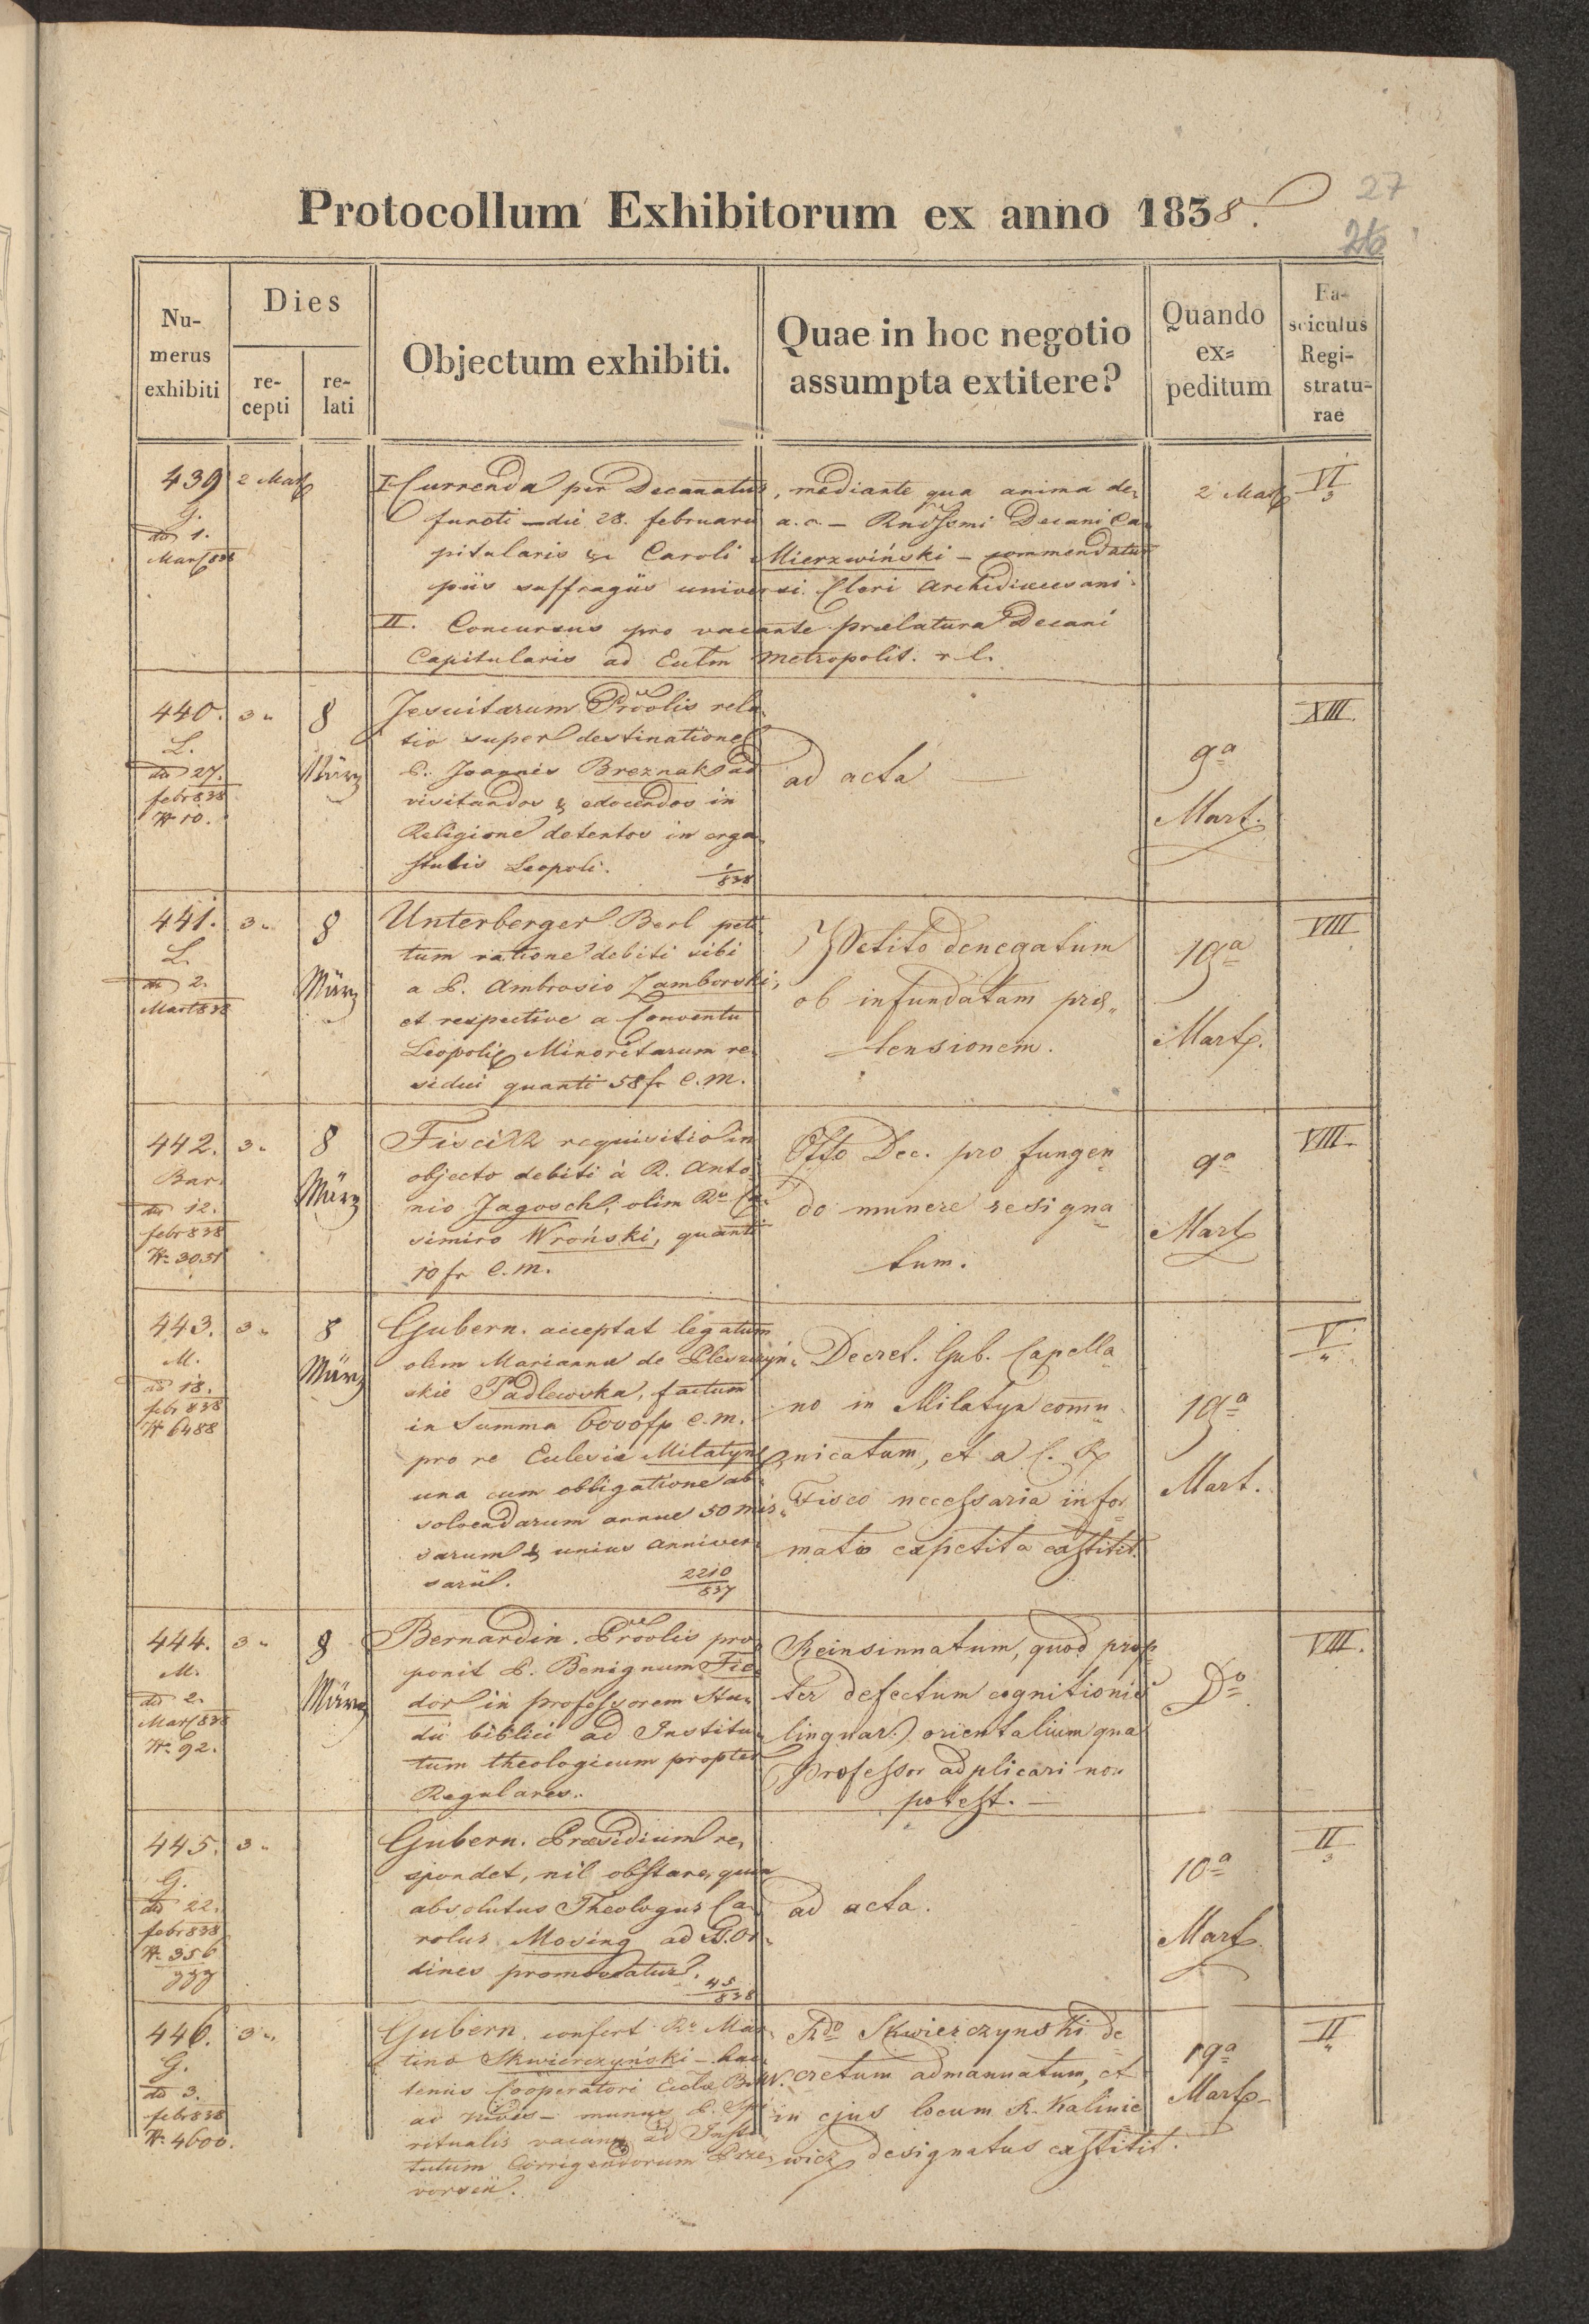 Protocollum Exhibitorum ex anno 1838.
27
26
Numerus exhibiti
Dies
recepti
relati
Objectum exhibiti.
Quae in hoc negotio assumpta extitere?
Quando expeditum
Fasciculus Registraturae
439
G.
do 1.
Mart 838
2 Mart
I Currenda per Decanatus, mediante qua anima de„
functi – die 28. februarii a. c. – Rndssmi Decani Ca„
pitularis Caroli Mierzwiński – commendatur
piis suffragiis universi Cleri Archidioecesani.
II. Concursus pro vacante praelatura Decani
Capitularis ad Eccl̄m metropolit. r. l.
2 Mart
VI
3
440.
L.
do 27.
febr 838
N 10.
3 „
8
März
Jesuitarum Proolis rela„
tio super destinatione
P. Joannis Breznak ad
visitandos & edocendos in
Religione detentos in erga„
stulis Leopoli.
1/838
ad acta —
9a
Mart.
XIII.
441.
L.
do 2.
Mart 838
3 „
8
März
Unterberger Berl peti
tum ratione debiti sibi
a P. Ambrosio Zamborski,
et respective a Conventu
Leopoli Minoritarum re„
sidui quanti 58 fr C.M.
Petito denegatum
ob infundatam prae„
tensionem.
19a
Mart.
VIII
442.
Bar.
do 12.
febr 838
N. 3051
3 „
8
März
Fisci RR requisitio in
objecto debiti à R. Anto„
nio Jagosch, olim Ro Ca„
simiro Wroński, quanti
10 fr C.M.
Offo Dec. pro fungen„
do munere resigna„
tum.
9a
Mart
VIII.
443.
M.
do 18.
febr 838
N 6488
3 „
8
März
Gubern. acceptat legatum
olim Marianna de Pleszczyń„
skie Padlewska, factum
in Summa 6000 fr C.M.
pro re Eclesia Milatyn„
una cum obligatione ab„
solvendarum annue 50 mis„
sarum & unius anniver„
sarii.
2210/837
Decret. Gub. Capella„
no in Milatyn comu„
nicatum, et a C. R.
Fisco necessaria infor„
matio expetita exstitit.
19a
Mart.
V
„
444.
M.
do 2.
Mart 838
N. 92.
3 „
8
März
Bernardin. Proolis pro„
ponit P. Benignum Fie„
dor in professorem Stu„
dii biblici ad Institu„
tum theologicum propter
Regulares.
Reinsinnatum, quod prop„
ter defectum cognitionis
linguar. orientalium qua
Professor adplicari non
potest. —
Do
VIII.
445.
G.
do 22.
febr 838
N. 356
3 „
Gubern. Praesidium re„
spondet, nil obstare, quin
absolutus Theologus Ca„
rolus Mosing ad S. Or„
dines promoveatur.
45/838
ad acta.
10a
Mart
II
3
446.
G.
do 3.
febr 838
N. 4600.
3 „
Gubern. confert Ro Mar„
tino Skwierczyński – hac„
tenus Cooperatori Eccl̄ae B.M.V.
ad nives – munus P. Spi„
ritualis vacans ad Insti„
tutum Corrigendorum Prze„
vorsii.
Rdo Skwierczynski de„
cretum admannatum, et
in ejus locum R. Kalinie„
wicz designatus exstitit.
19a
Mart
II
„